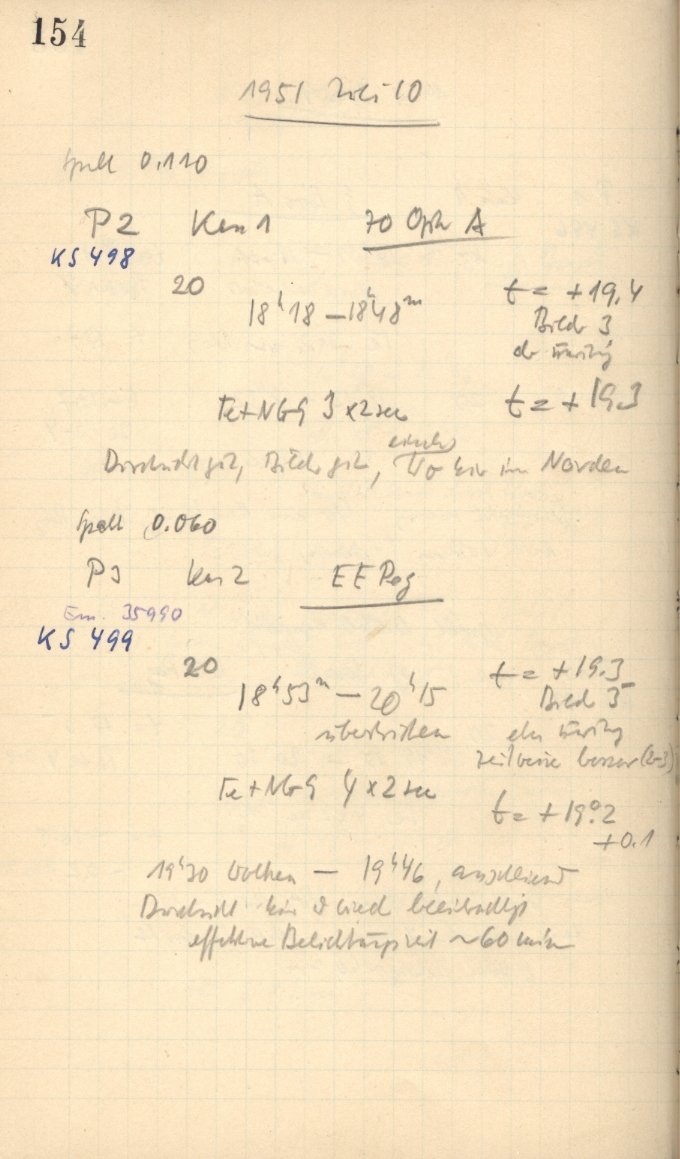 154
1951 Juli 10
Spalt 0.110
P2 Kam 1 70 Oph A
KS 498
20 18ʰ18 – 18ʰ48ᵐ t = +19,4
Bild 3
Fe+NGG 3 x 2 sec t = +19.3
Durchsicht gut, Bilder gut, einzelne im Norden
Spalt 0.060
P3 Kam 2 EE Peg
Em. 35990
KS 499
20 18ʰ53ᵐ – 20ʰ15 t = +19.3
Bild 3
überbrücken
zeitweise besser (2-3)
Fe+NGG 4 x 2 sec t = +19.°2
+0.1
19ʰ30 Wolken – 19ʰ46, anschliessend
Durchsicht beeinträchtigt
effektive Belichtungszeit ~60 min